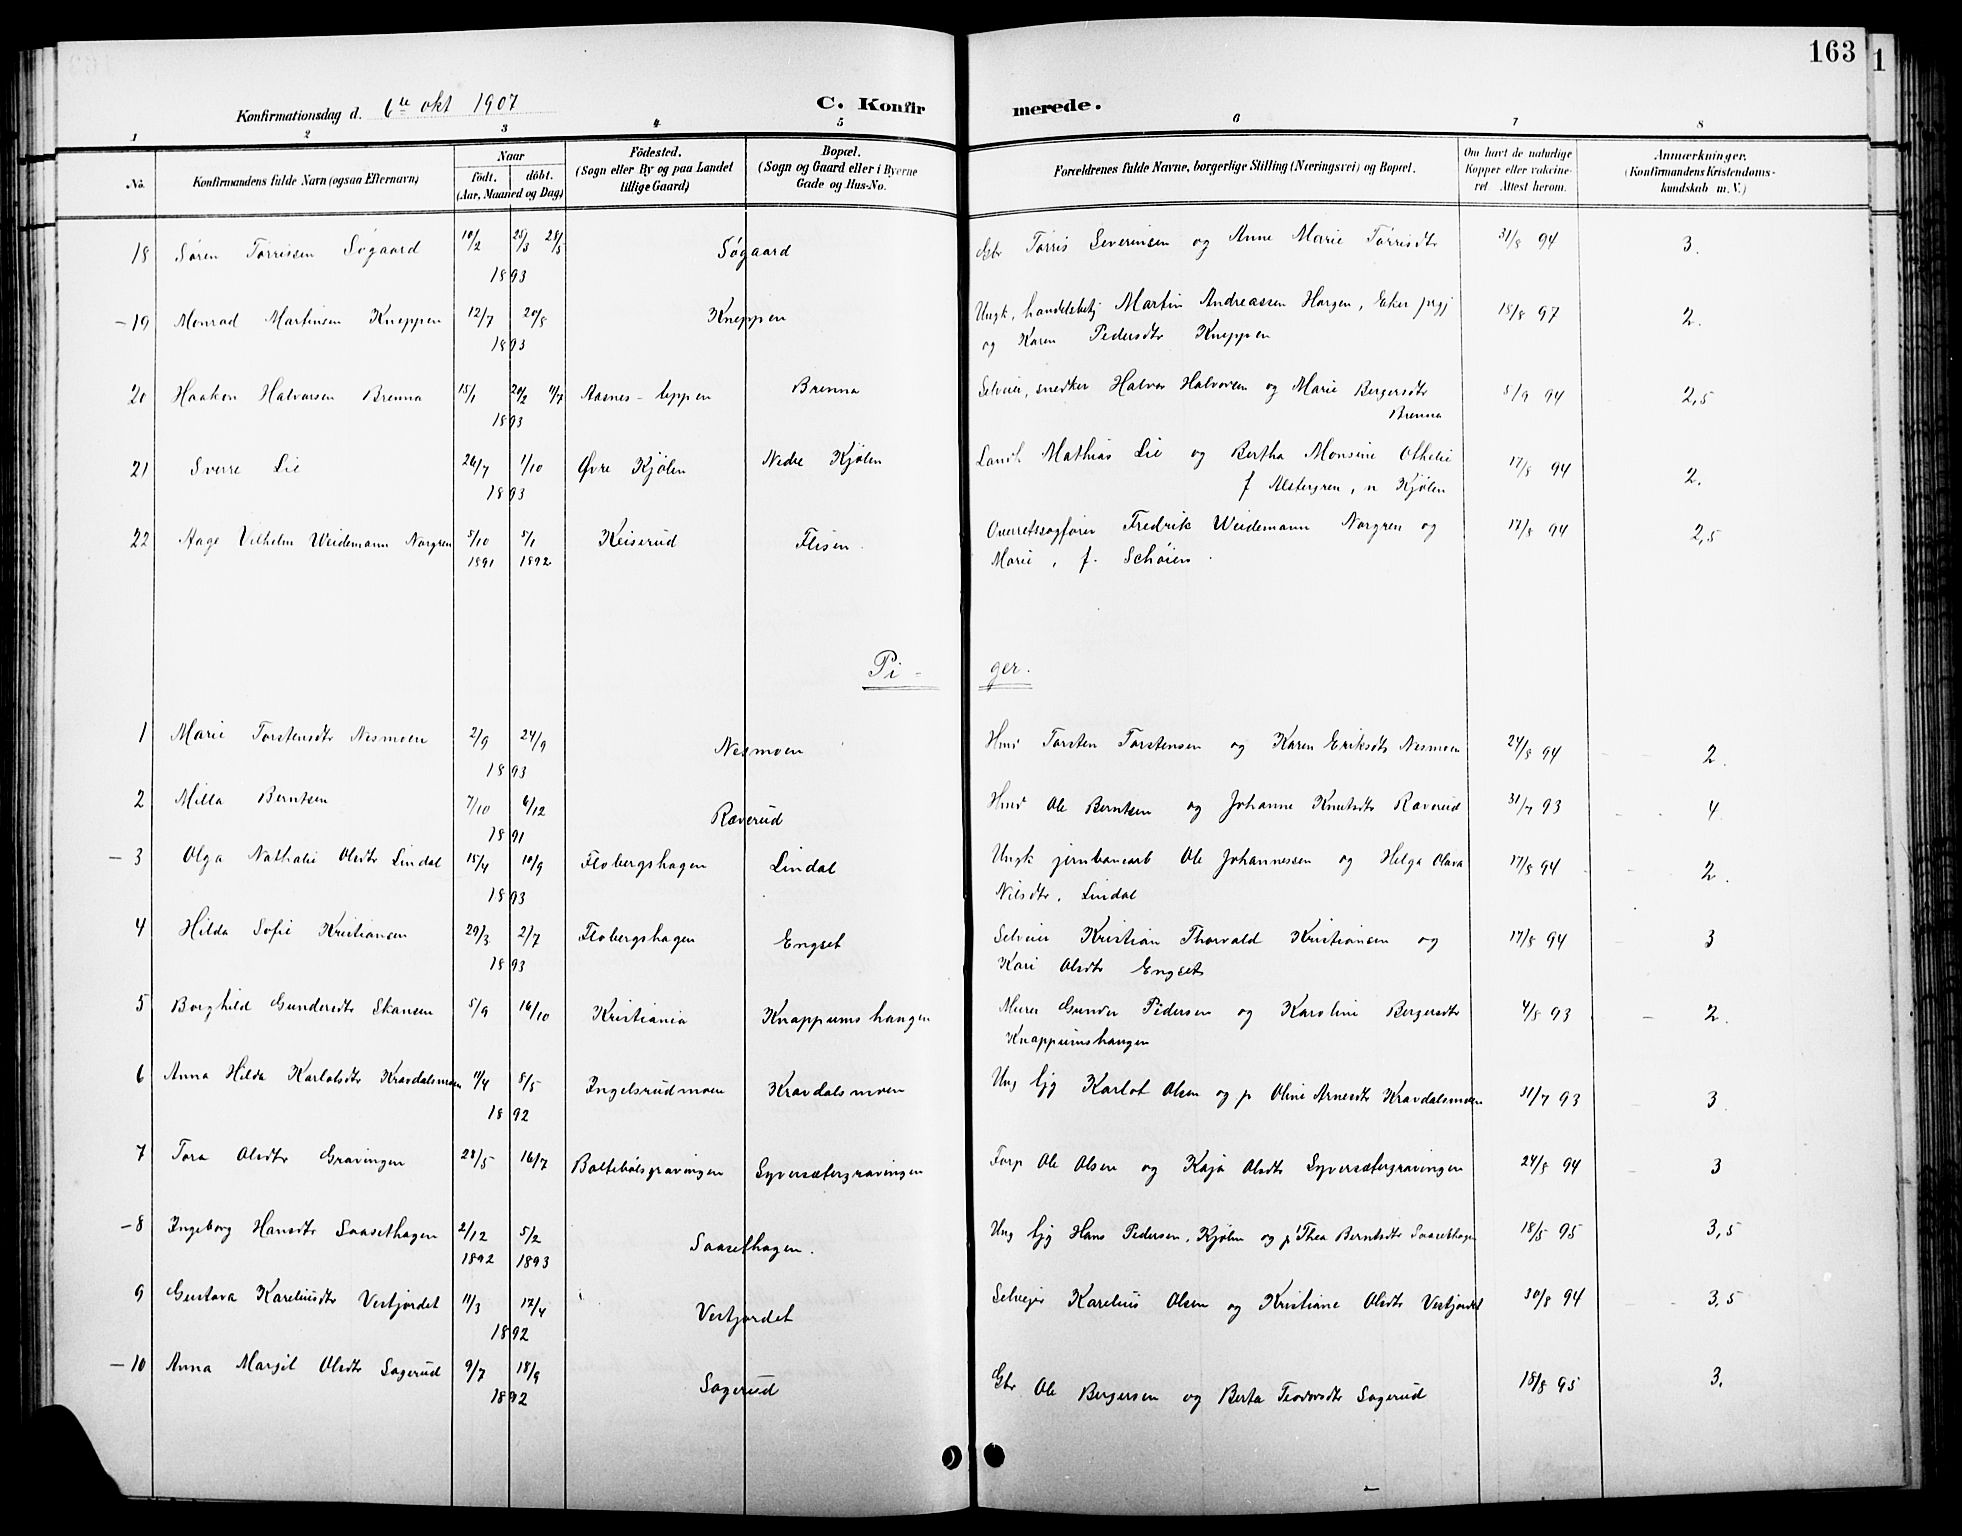 163
1
Konfirmationsdag d. 6te okt 1907
C. Konfirmerede.
1 2 3 4 5 6 7 8
No.
Konfirmandens fulde Navn (ogsaa Efternavn)
Naar
födt. döbt.
(Aar, Maaned og Dag)
Födested.
(Sogn eller By og paa Landet
tillige Gaard)
Bopæl.
(Sogn og Gaard eller i Byerne
Gade og Hus-No.
Forældrenes fulde Navne, borgerlige Stilling (Næringsvei) og Bopæl.
Om havt de naturlige
Kopper eller vakcine-
ret. Attest herom.
Anmærkninger.
(Konfirmandens Kristendoms-
kundskab m. V.)
18 Søren Torrissen Søgaard 10/2 25/3 28/5 Søgaard Gbr Torris Severinsen og Anne Marie Torrisdtr 31/8 94 3.
1893
-19 Monrad Martinsen Kneppen 12/7 20/8 Kneppen Ungk, handelsbetj Martin Andreassen Horgen, Eker prgj 18/8 97 2.
1893 og Karen Pedersdtr Kneppen
20 Haakon Halvorsen Brenna 15/1 20/2 11/7 Aasnes-teppen Brenna Selveier, snedker Halvor Halvorsen og Marie Bergersdtr 5/9 94 2,5
1893 Brenna
21 Sverre Lie 26/7 1/10 Øvre Kjølen Nedre Kjølen Landh Mathias Lie og Bertha Monsine Othelie 17/8 94 2.
1893 f Alstergren, n Kjølen
22 Aage Vilhelm Weidemann Norgren 5/10 5/1 Keiserud Flisen. Overretssagfører Fredrik Weidemann Norgren og 17/8 94 2,5
1891 1892 Marie, f. Schøien.
Pi-ger.
1 Marie Torstensdtr Nesmoen 2/9 24/9 Nesmoen Hmd Torsten Torstensen og Karen Eriksdtr Nesmoen 24/8 94 2.
1893
2 Milla Berntsen 7/10 6/12 Ræverud Hmd Ole Berntsen og Johanne Knutsdtr Ræverud 31/7 93 4.
1891
-3 Olga Nathalie Olsdtr Lindal 15/4 10/9 Flobergshagen Lindal Ungk jernbanearb Ole Johannessen og Helga Olava 17/8 94 2.
1893 Nilsdtr. Lindal
4 Hilda Sofie Kristiansen 29/3 2/7 Flobergshagen Engset Selveier Kristian Thorvald Kristiansen og 17/8 94 3
1893 Kari Olsdtr Engset
5 Borghild Gundersdtr Skansen 5/9 16/10 Kristiania Knappumshangen Murer Gunder Pedersen og Karoline Bergersdtr 4/8 93 2.
Knappumshangen
6 Anna Hilda Karlotsdtr Kravdalsmoen 11/4 8/5 Ingelsrudmoen Kravdalsmoen Ung tjg Karlot Olsen og p Oline Arnesdtr Kravdalsmoen 31/7 93 3.
1892
7 Tora Olsdtr Gravingen 28/5 16/7 Baltebølsgravingen Syversætergravingen Forp Ole Olsen og Kaja Olsdtr Syversætergravingen 24/8 94 3
-8 Ingeborg Hansdtr Saasethagen 2/12 5/2 Saasethagen. Ung tjg Hans Pedersen, Kjølen og p Thea Berntsdtr Saasethagen 18/5 95 3,5
1892 1893
9 Gustava Kareliusdtr Vestjordet 11/3 17/4 Vestjordet Selveier Karelius Olsen og Kristiane Olsdtr Vestjordet 30/8 94 3,5
1892
-10 Anna Margit Olsdtr Sagerud 9/7 18/9 Sagerud Gbr Ole Bergersen og Berta Teodorsdtr Sagerud 18/8 95 3.
1892